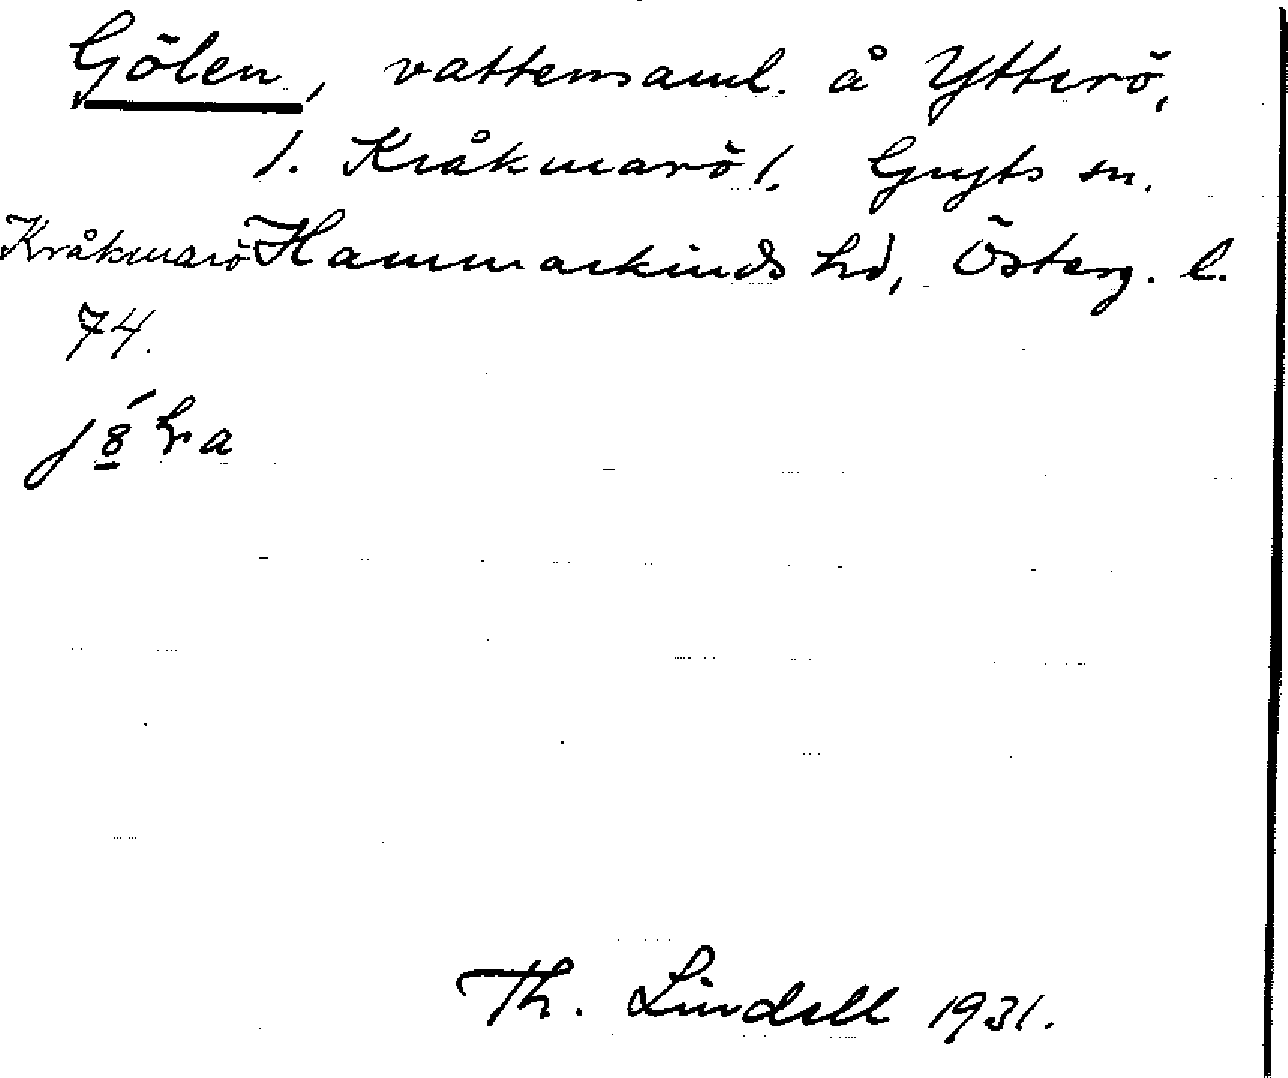 Gölen, vattensaml. å Ytterö,
1. Kråkmarö 1, Gryts sn.
Kråkmarö Hammarkinds hd, Österg. l.
74.
Th. Lindell 1931.